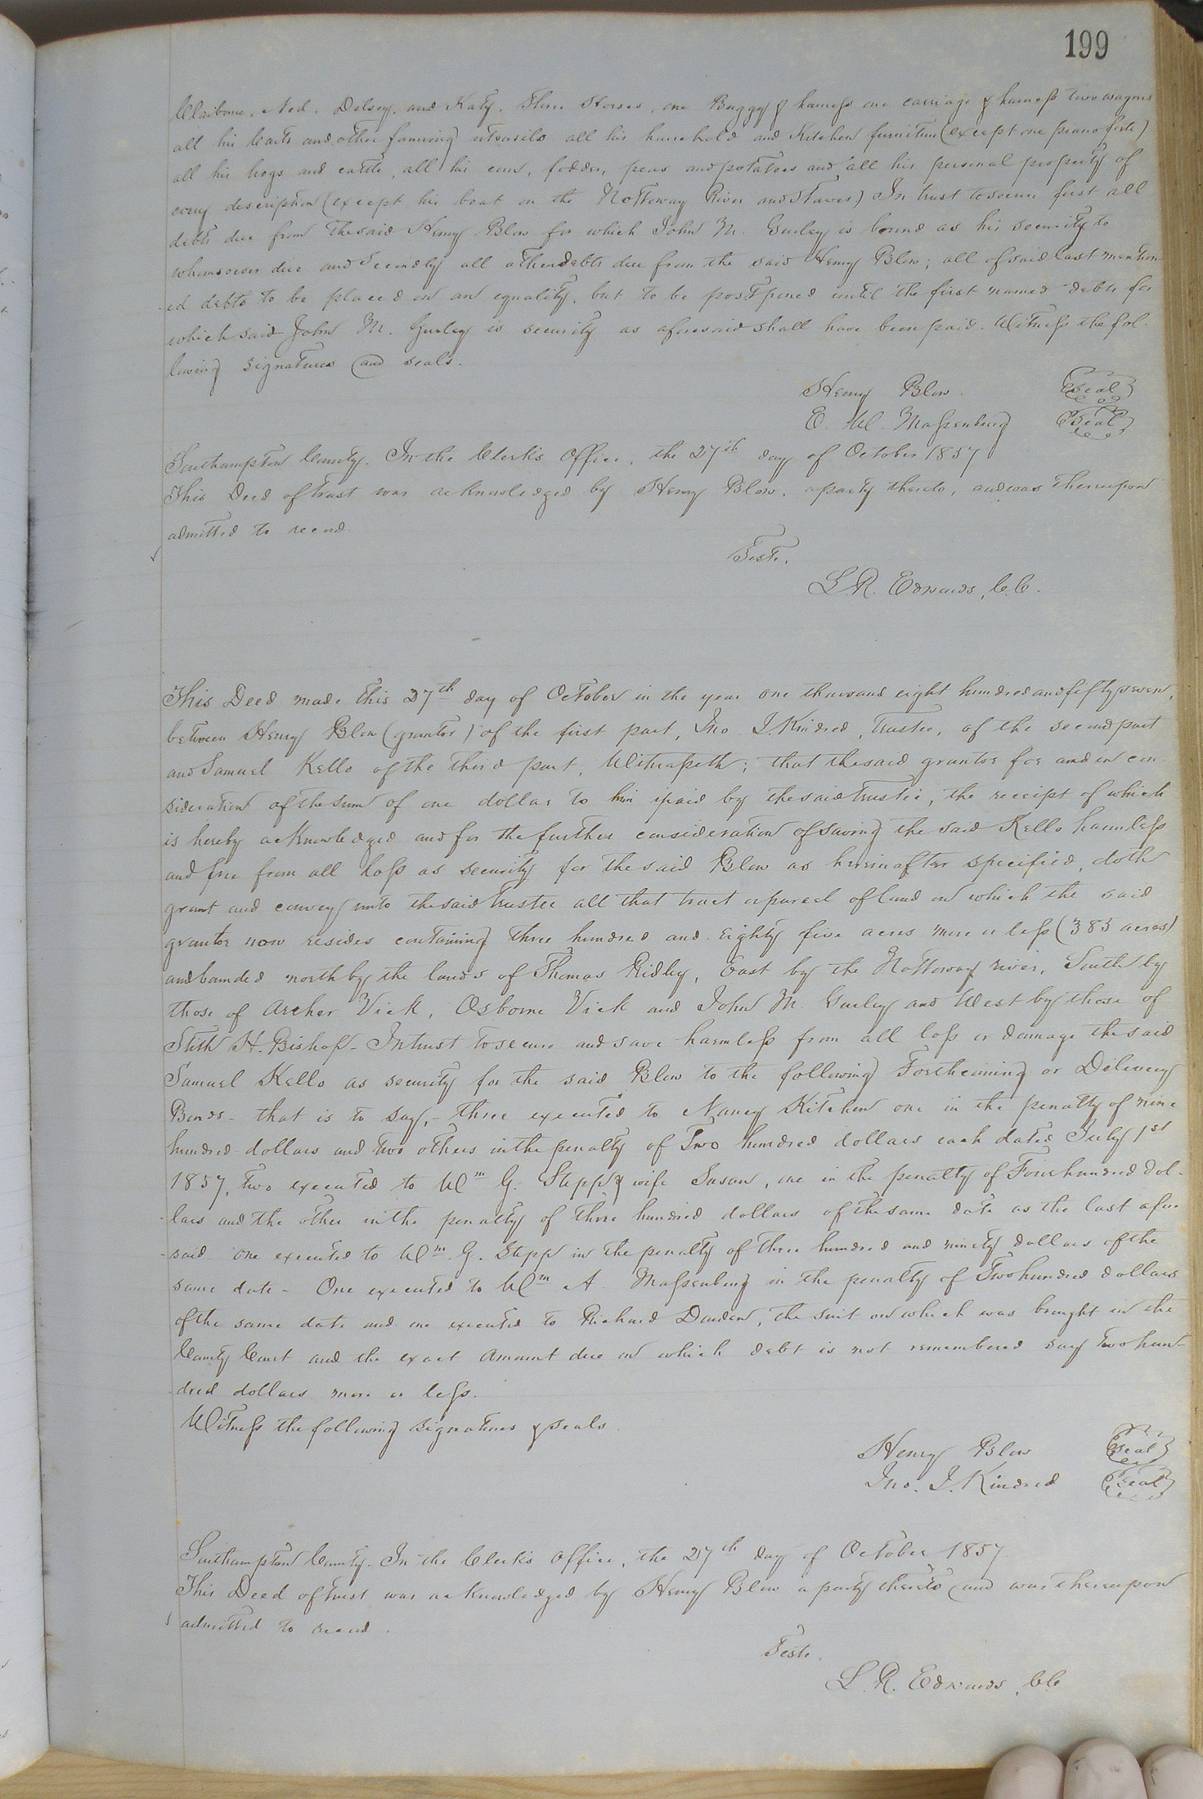 199
Claiborne, Ned, Delsey, and Katy. Three Horses, one Buggy & harness one carriage & harness two wagons
all his carts and other farming utensils all his household and Kitchen furniture (except one piano forte)
all his hogs and cattle, all his corn, fodder, peas and potatoes and all his personal property of
every description (except his boat on the Nottoway River and Staves) In trust to secure first all
debts due from the said Henry Blow for which John M. Gurley is bound as his security to
whomsoever due and Secondly all other debts due from the said Henry Blow; all of said last mention-
-ed debts to be placed on an equality, but to be postponed until the first named debts for
which said John M. Gurley is security as aforesaid shall have been paid. Witness the fol-
lowing signatures and seals.
Henry Blow Seal
E. W. Massenburg Seal
Southampton County. In the Clerk's Office, the 27th day of October 1857
This Deed of trust was acknowledged by Henry Blow, a party thereto, and was thereupon
admitted to record.
Teste.
L R. Edwards, C.C.
This Deed made this 27th day of October in the year one thousand eight hundred and fifty seven,
between Henry Blow (grantor) of the first part, Jno J. Kindred, Trustee, of the second part
and Samuel Kello of the third part, Witnesseth; that the said grantor for and in con-
sideration of the sum of one dollar to him paid by the said trustee, the receipt of which
is hereby acknowledged and for the further consideration of saving the said Kello harmless
and free from all loss as security for the said Blow as hereinafter specified, doth
grant and convey unto the said trustee all that tract or parcel of land on which the said
grantor now resides containing three hundred and eighty five acres more or less (385 acres)
and bounded north by the lands of Thomas Ridley, East by the Nottoway river, South by
those of Archer Vick, Osborne Vick and John M. Gurley and West by those of
Stith H. Bishop - In trust to secure and save harmless from all loss or damage the said
Samuel Kello as security for the said Blow to the following Forthcoming or Delivery
Bonds - that is to say, - three executed to Nancy Kitchen one in the penalty of nine
hundred dollars and two others in the penalty of Two hundred dollars each dated July 1st
1857, two executed to Wm G. Stepp & wife Susan, one in the penalty of Four hundred dol-
-lars and the other in the penalty of three hundred dollars of the same date as the last afore
-said one executed to Wm G. Stepp in the penalty of three hundred and ninety dollars of the
same date - One executed to Wm A. Massenburg in the penalty of Two hundred dollars
of the same date and one executed to Richard Darden, the suit on which was brought in the
County Court and the exact amount due on which debt is not remembered say two hun
-dred dollars more or less.
Witness the following signatures & seals
Henry Blow Seal
Jno. J. Kindred Seal
Southampton County. In the Clerk's Office, the 27th day of October 1857
This Deed of trust was acknowledged by Henry Blow a party thereto and was thereupon
admitted to record.
Teste.
L. R. Edwards, CC